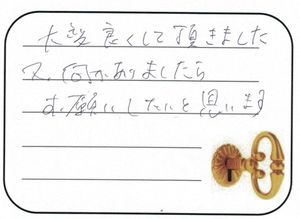 大変良くして頂きました
又、何かありましたら
お願いしたいと思います